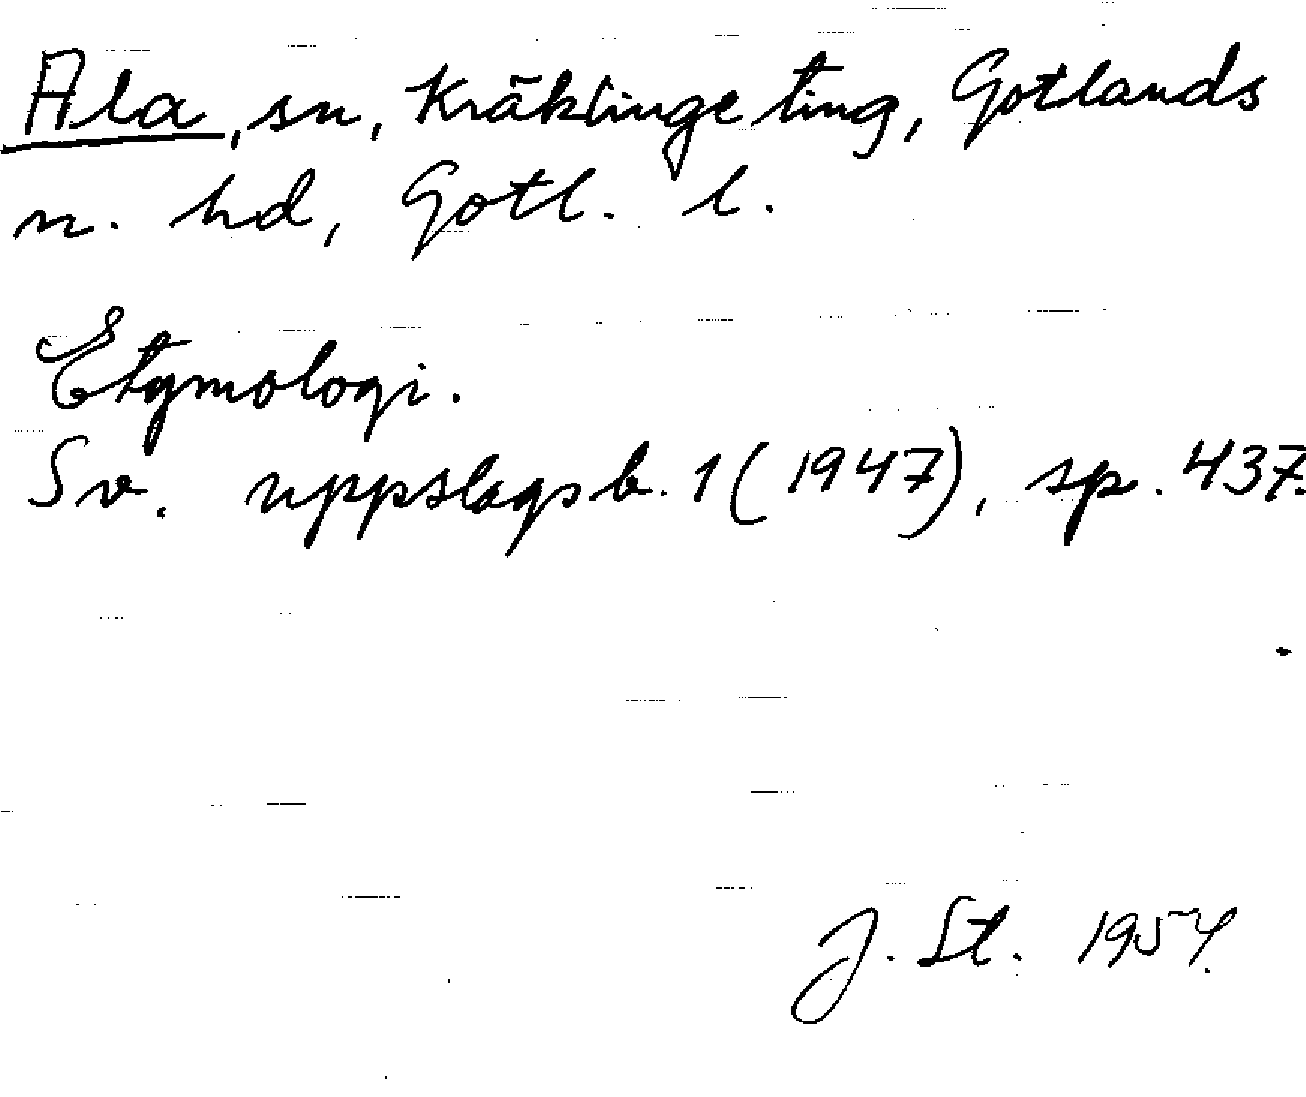 Ala, sn, Kräklinge ting, Gotlands
n. hd, Gotl. l.
Etymologi.
Sv. uppslagsb. 1 (1947), sp. 437.
J. St. 1954.